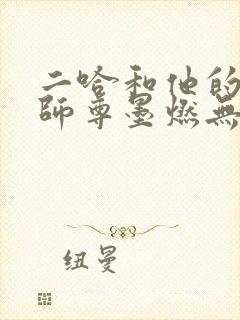 二哈和他的
師尊墨燃無
纽曼